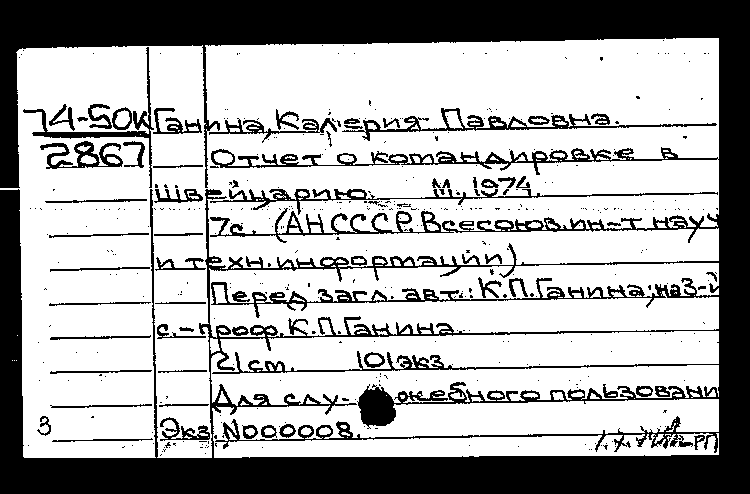 74-50к Ганина, Калерия Павловна.
2867 Отчет о командировке в
Швейцарию. М., 1974.
7с. (АН СССР. Всесоюз. ин-т науч
и техн. информации).
Перед загл. авт.: К.П.Ганина; на 3-й
с.-проф. К.П.Ганина.
21 ст. 101 экз.
Для слу-жебного пользовани
3 Экз. N000008.